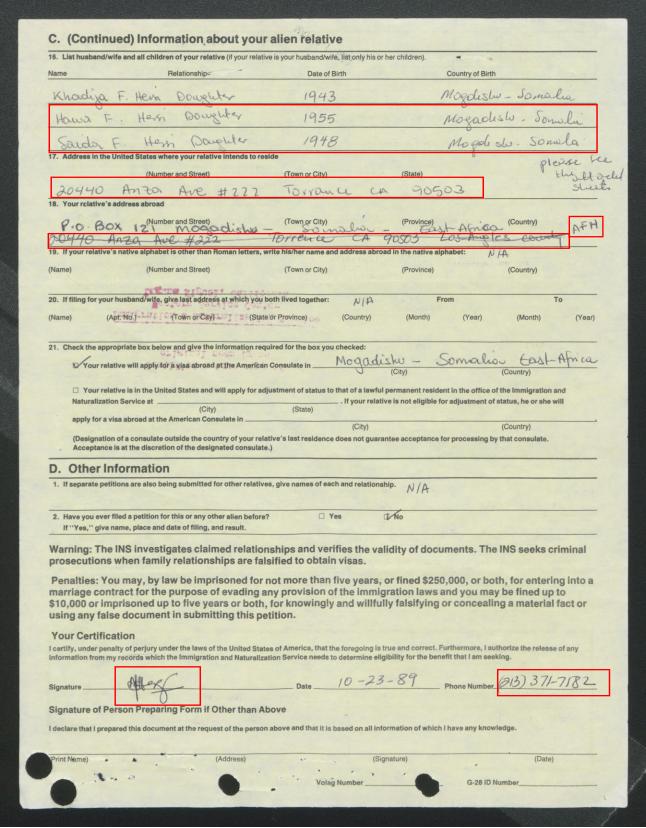 C. (Continued) Information about your alien relative
16. List husband/wife and all children of your relative (if your relative is your husband/wife, list only his or her children).
Name Relationship Date of Birth Country of Birth
Khadija F. Hersi Doughter 1943 Mogdishu - Somalia
Hawa F. Hersi Doughter 1955 Mogadishu - Somalia
Saida F. Hersi Doughter 1948 Mogdishu - Somalia
17. Address in the United States where your relative intends to reside
please see
the
sheets
(Number and Street) (Town or City) (State)
20440 Anza Ave #222 Torrance CA 90503
18. Your relative's address abroad
(Number and Street) (Town or City) (Province) (Country)
P.O. Box 121 Mogadishu - Somalia - East-Africa
AFH
20440 Anza Ave #222 Torrence CA 90503 Los-Angles County
19. If your relative's native alphabet is other than Roman letters, write his/her name and address abroad in the native alphabet: N/A
(Name) (Number and Street) (Town or City) (Province) (Country)
20. If filing for your husband/wife, give last address at which you both lived together: N/A From To
(Name) (Apt. No.) (Town or City) (State or Province) (Country) (Month) (Year) (Month) (Year)
21. Check the appropriate box below and give the information required for the box you checked:
Your relative will apply for a visa abroad at the American Consulate in Mogadishu - Somalia East-Africa
(City) (Country)
Your relative is in the United States and will apply for adjustment of status to that of a lawful permanent resident in the office of the Immigration and
Naturalization Service at . If your relative is not eligible for adjustment of status, he or she will
(City) (State)
apply for a visa abroad at the American Consulate in
(City) (Country)
(Designation of a consulate outside the country of your relative's last residence does not guarantee acceptance for processing by that consulate.
Acceptance is at the discretion of the designated consulate.)
D. Other Information
1. If separate petitions are also being submitted for other relatives, give names of each and relationship. N/A
2. Have you ever filed a petition for this or any other alien before? Yes No
If "Yes," give name, place and date of filing, and result.
Warning: The INS investigates claimed relationships and verifies the validity of documents. The INS seeks criminal
prosecutions when family relationships are falsified to obtain visas.
Penalties: You may, by law be imprisoned for not more than five years, or fined $250,000, or both, for entering into a
marriage contract for the purpose of evading any provision of the immigration laws and you may be fined up to
$10,000 or imprisoned up to five years or both, for knowingly and willfully falsifying or concealing a material fact or
using any false document in submitting this petition.
Your Certification
I certify, under penalty of perjury under the laws of the United States of America, that the foregoing is true and correct. Furthermore, I authorize the release of any
information from my records which the Immigration and Naturalization Service needs to determine eligibility for the benefit that I am seeking.
Signature Date 10-23-89 Phone Number (213) 371-7182
Signature of Person Preparing Form if Other than Above
I declare that I prepared this document at the request of the person above and that it is based on all information of which I have any knowledge.
(Print Name) (Address) (Signature) (Date)
Volag Number G-28 ID Number